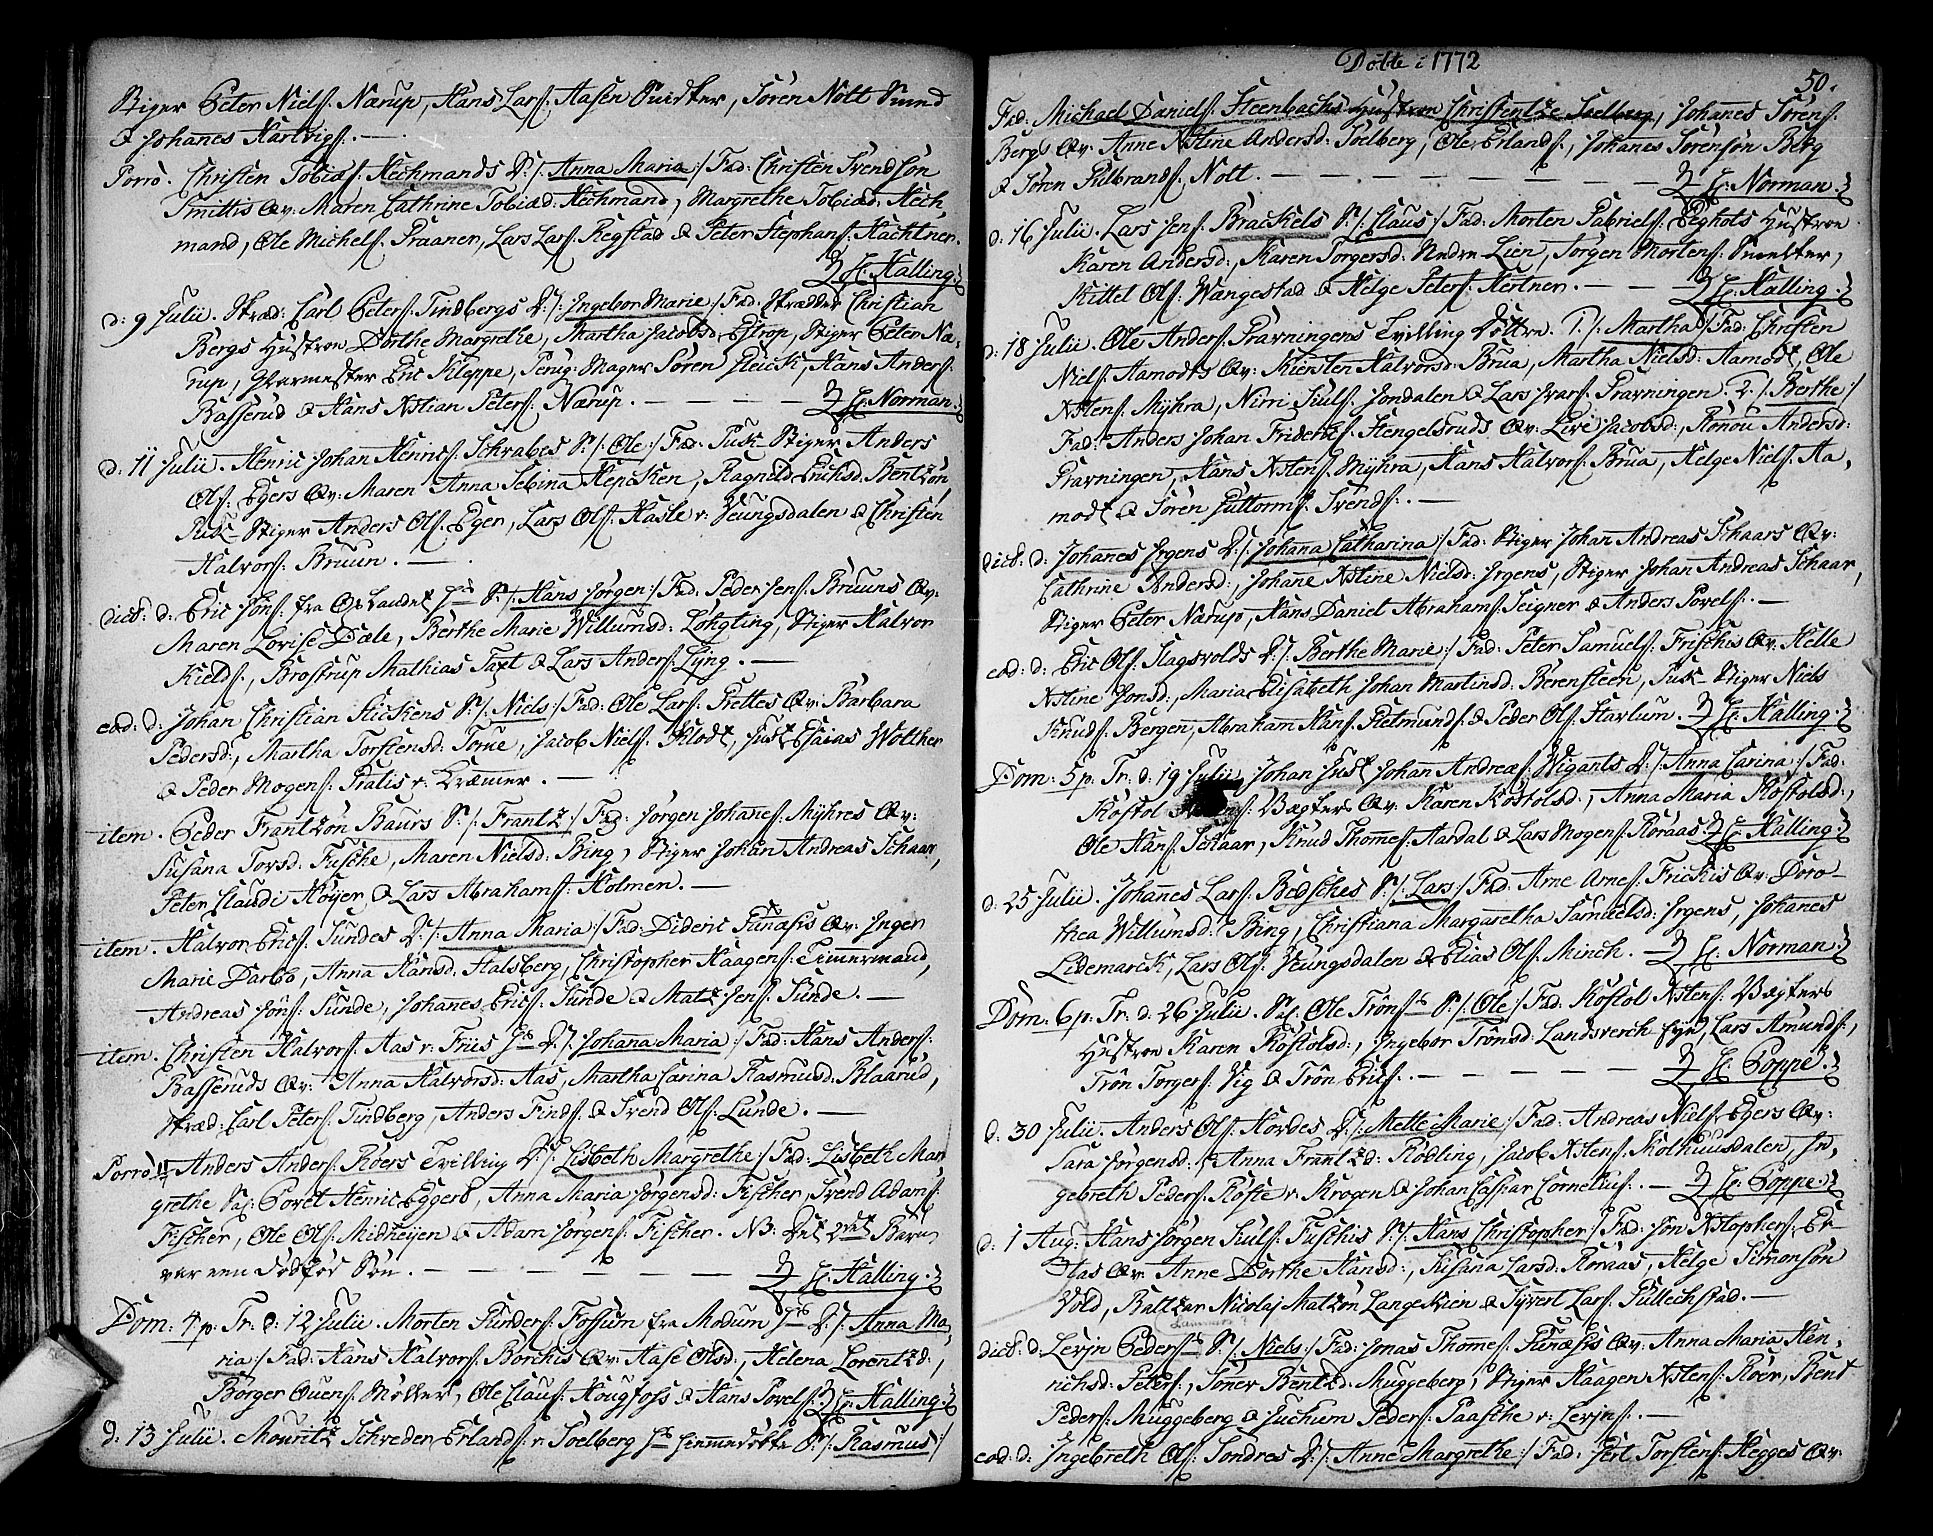 Stiger Peter Niels: Nærup, Hans Lars: Aasen Snidker, Sören Nott Smed
& Johanes Hartvigs: —
Porro. Christen Tobiæs: Hechmands D:/: Anna Maria :/ Fad: Christen Svendsön
Smittis Qv: Maren Cathrine Tobiæd: Hechmand, Margrethe Tobiæd: Hech,
mand, Ole Michels: Praaner, Lars Lars: Regstad & Peter Stephans: Hachtner.
H: Halling.
d: 9 Julii. Skræd: Carl Peters: Tindbergs D:/: Ingebor Marie :/ Fad: Skrædder Christian
Bergs Hustroe Dorthe Margrethe, Martha Jacobsd: Estrop, Stiger Peter Næ,
rup, Eric Kleppe, Sören Fleick, Hans Anders:
Basserud & Hans Xstian Peters: Nærup. — — — — H: Norman.
d: 11 Julii. Henric Johan Henrics: Schrabes S:/: Ole :/ Fad: Puk-Stiger Anders
Ols: Egers Qv: Maren Anna Sebina Hepcken, Ragnild Erichsd: Bentzön,
Puk-Stiger Anders Ols: Eger, Lars Ols: Hasle v: Jeungsdalen & Christen
Halvors: Bruun. —
dict: d: Eric Jöns: fra Oplandet S:/: Hans Jörgen :/ Fad: Peder Jens: Bruuns Qv:
Maren Lovise Dæle, Berthe Marie Willumsd: Lohgting, Stiger Halvor
Kields:, Brostrup Mathias Taxt & Lars Anders: Lyng. —
eod: d: Johan Christian Fickens S:/: Niels :/ Fad: Ole Lars: Frettes Qv: Barbara
Pedersd:, Martha Torstensd: Torne, Jacob Niels: Klodt, Just Esaias Wolther
& Peder Mogens: Pratis v: Kræmer. —
item. Peder Frantzön Baurs S:/: Frantz :/ Fad: Jörgen Johanes: Myhres Qv:
Susana Torsd: Fusche, Maren Nielsd: Bing, Stiger Johan Andreas Schaar,
Peter Claudi Höyer & Lars Abrahams: Holmen. —
item. Halvor Erics: Sundes D:/: Anna Maria :/ Fad: Dideric Funasis Qv: Inger
Marie Darbo, Anna Hansd: Halsberg, Christopher Haagens: Timmermand,
Andreas Jöns: Sunde, Johanes Erics: Sunde & Matz Jens: Sunde. —
item. Christen Halvors: Aas v: Friis D:/: Johana Maria :/ Fad: Hans Anders:
Basseruds Qv: Anna Halvorsd: Aas, Martha Carina Rasmusd: Blaarud,
Skræd: Carl Peters: Tindberg, Anders Finds: & Svend Ols: Lunde. —
Porro. Anders Anders: Röers Tvilling D:/: Lisbeth Margrethe :/ Fad: Lisbeth Mar
grethe Sal: Povel Henric Eggers, Anna Maria Jörgensd: Fischer, Svend Adams:
Fischer, Ole Ols: Midheyen & Adam Jörgens: Fischer. NB: Det 2det Barn
var een Dödföd Sön. — — — — H: Halling.
Dom: 4 p: Tr: d: 12 Julii. Morten Gunders: Fossum fra Modum D:/: Anna Ma,
ria :/ Fad: Hans Halvors: Börckis Qv: Aase Olsd:, Helena Lorentzd:,
Börger Ouens: Möller, Ole Claus: Hougfoss & Hans Povels: H: Halling.
d: 13 Julii. Mouritz Schreder Erlands: v: Soelberg hiemedöbte S:/: Rasmus :/
Döbte i 1772
50.
Fad: Michael Daniels: Steenbachs Hustroe Christentze Soelberg, Johanes Sörens:
Bergs Qv: Anne Xstine Andersd: Soelberg, Ole Erlands:, Johanes Sörensön Berg
& Sören Gulbrands: Nott. — — — — H: Norman.
d: 16 Julii. Lars Jens: Brackels S:/: Claus :/ Fad: Morten Gabriels: Beghols Hustroe
Karen Andersd:, Karen Torgersd: Nedre Lien, Jörgen Mortens: Smelter,
Kittel Ols: Wangestad & Helge Peters: Hertner. — — H: Halling.
d: 18 Julii. Ole Anders: Pravningens Tvilling Döttre. 1:/: Martha :/ Fad: Christen
Niels: Aamodts Qv: Kiersten Halvorsd: Brua, Martha Nielsd: Aamodt, Ole
Xstens: Myhra, Nirri Juls: Jondalen & Lars Ivars: Pravningen. 2:/: Berthe :/
Fad: Anders Johan Friderics: Stengelsruds Qv: Live Jacobsd:, Rönou Andersd:
Pravningen, Hans Xstens: Myhra, Hans Halvors: Brua, Helge Niels: Aa,
modt & Sören Guttorms: Svends: —
dict: d: Johanes Irgens D:/: Johana Catharina :/ Fad: Stiger Johan Andreas Schaars Qv:
Cathrine Andersd:, Johane Xstine Nielsd: Irgens, Stiger Johan Andreas Schaar,
Stiger Peter Nærup, Hans Daniel Abrahams: Seigner & Anders Povels: —
eod: d: Eric Ols: Hagsvolds D:/: Berthe Marie :/ Fad: Peter Samuels: Frischis Qv: Helle
Xstine Jonsd:, Maria Elisabeth Johan Martinsd: Berensteen, Puk-Stiger Niels
Knuds: Bergen, Abraham Hans: Fietmunds: & Peder Ols: Starlum. H: Halling.
Dom: 5 p: Tr: d: 19 Julii. Johan Just Johan Andreæs: Wigants D:/: Anna Carina :/ Fad:
Kostol Vægters Qv: Karen Kostolsd:, Anna Maria Kostolsd:,
Ole Hans: Schaar, Knud Thomes: Aardal & Lars Mogens: Roraas. H: Halling.
d: 25 Julii. Johanes Lars: Bedsches S:/: Lars :/ Fad: Arne Arnes: Frickis Qv: Doro-
thea Willumsd: Bing, Christiana Margaretha Samuelsd: Irgens, Johanes
Lidemarck, Lars Ols: Jeungsdalen & Elias Ols: Minch. — H: Norman.
Dom: 6 p: Tr: d: 26 Julii. Sal: Ole Tröns: S:/: Ole :/ Fad: Kostol Xstens: Vægters
Hustroe Karen Kostolsd:, Ingebor Trönsd: Landsverch Eje, Lars Amunds:,
Trön Torgers: Vig & Trön Erics: — — — — H: Poppe.
d: 30 Julii. Anders Ols: Hordes D:/: Mette Marie :/ Fad: Andreas Niels: Egers Qv:
Sara Jörgensd:, Anna Frantzd: Rödling, Jacob Xstens: Kolhuusdalen, In,
gebreth Peders: Röste v: Krogen & Johan Caspar Cornelius: — H: Poppe.
d: 1 Aug: Hans Jörgen Juls: Fuschis S:/: Hans Christopher :/ Fad: Jön Xstophers: Er
Aas Qv: Anne Dorthe Hansd:, Susana Larsd: Roraas, Helge Simonsön
Vold, Baltzar Nicolaj Matzön Langekien & Syvert Lars: Gullechstad. —
dict: d: Levin Peders: S:/: Niels :/ Fad: Jonas Thomes: Funasis Qv: Anna Maria Hen-
richsd: Peters:, Soner Bentzd: Muggeberg, Stiger Haagen Xstens: Röer, Bent
Peders: Muggeberg & Juchum Peders: Paasche v: Levins: —
eod: d: Ingebreth Ols: Tondres D:/: Anne Margrethe :/ Fad: Jerl Torstens: Hegges Qv: